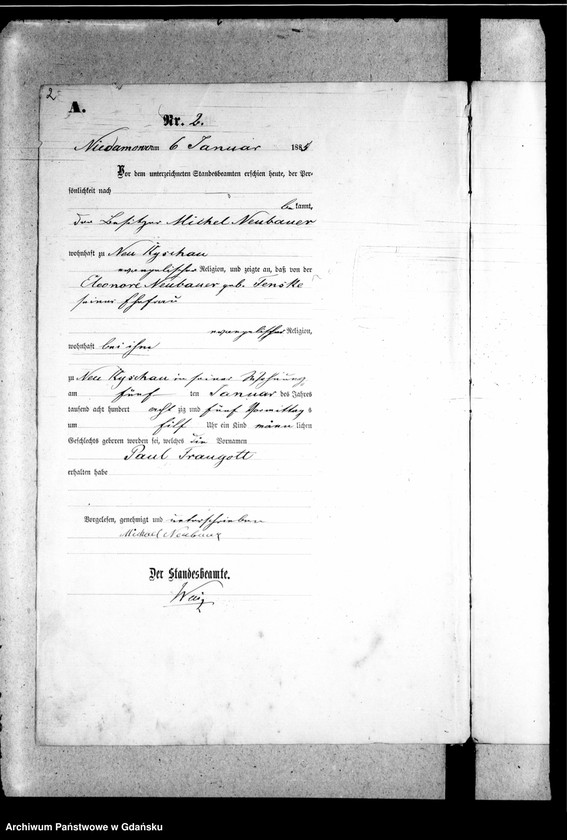 2
A.
Nr. 2.
Niedamowo am 6 Januar 1885
Vor dem unterzeichneten Standesbeamten erschien heute, der Per-
sönlichkeit nach
bekannt,
der Besitzer Michel Neubauer
wohnhaft zu Neu Kyschau
evangelischer Religion, und zeigte an, daß von der
Eleonore Neubauer geb. Tenske
seiner Ehefrau
evangelischer Religion,
wohnhaft bei ihm
zu Neu Kyschau in seiner Wohnung
am fünf ten Januar des Jahres
tausend acht hundert acht zig und fünf Vormittag s
um Uhr ein Kind männ lichen
Geschlechts geboren worden sei, welches die Vornamen
Paul Traugott
erhalten habe
Vorgelesen, genehmigt und unterschrieben
Michael Neubauer
Der Standesbeamte.
Archiwum Państwowe w Gdańsku